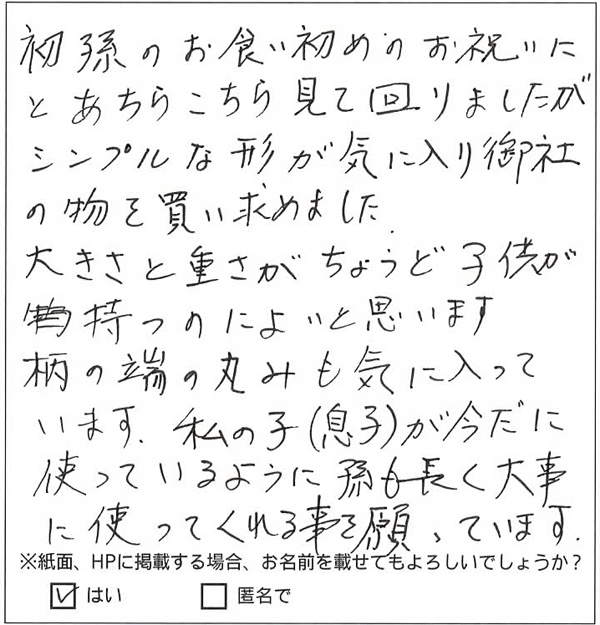 初孫のお食い初めのお祝いに
とあちらこちら見て回りましたが
シンプルな形が気に入り御社
の物を買い求めました.
大きさと重さがちょうど子供が
持つのによいと思います
柄の端の丸みも気に入って
います. 私の子(息子)が今だに
使っているように孫も長く大事
に使ってくれる事を願っています.
※紙面、HPに掲載する場合、お名前を載せてもよろしいでしょうか？
☑ はい □ 匿名で